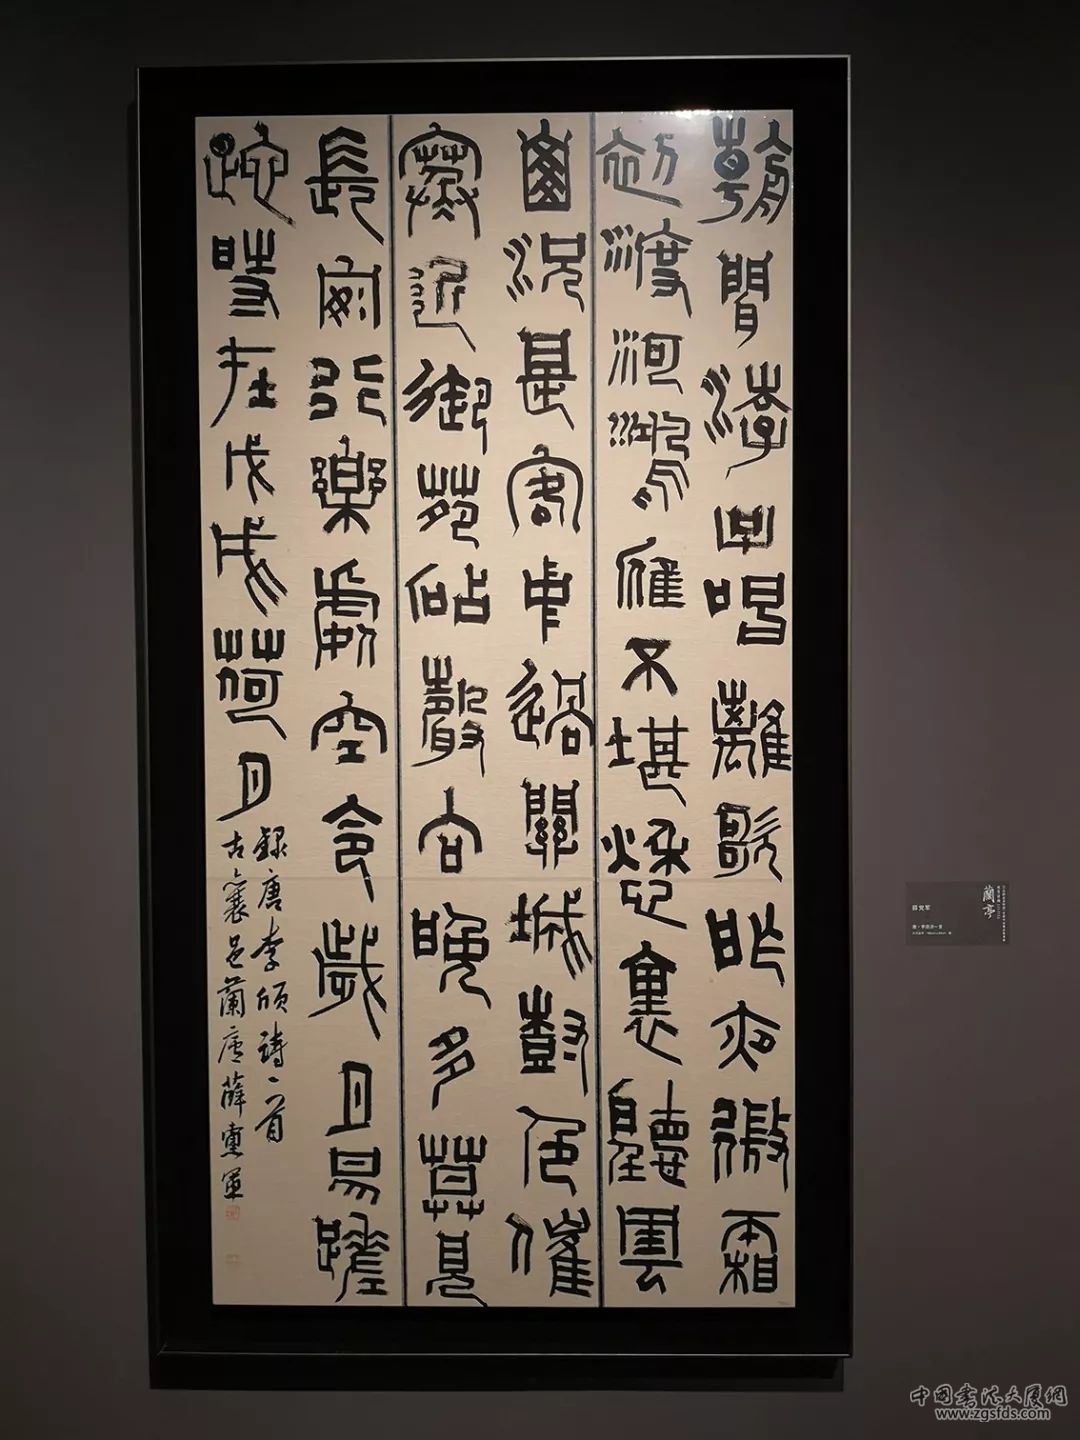 朝聞游子唱離歌昨夜微霜
初渡河鴻雁不堪愁裏聽雲
山況是客中過關城樹色催
寒近御苑砧聲向晚多莫見
長安行樂處空令歲月易蹉
跎時在戊戌荷月
錄唐李頎詩一首
古襄邑蘭唐薛党軍
蘭亭
薛党军
中國書法大廈網
www.zgsfds.com